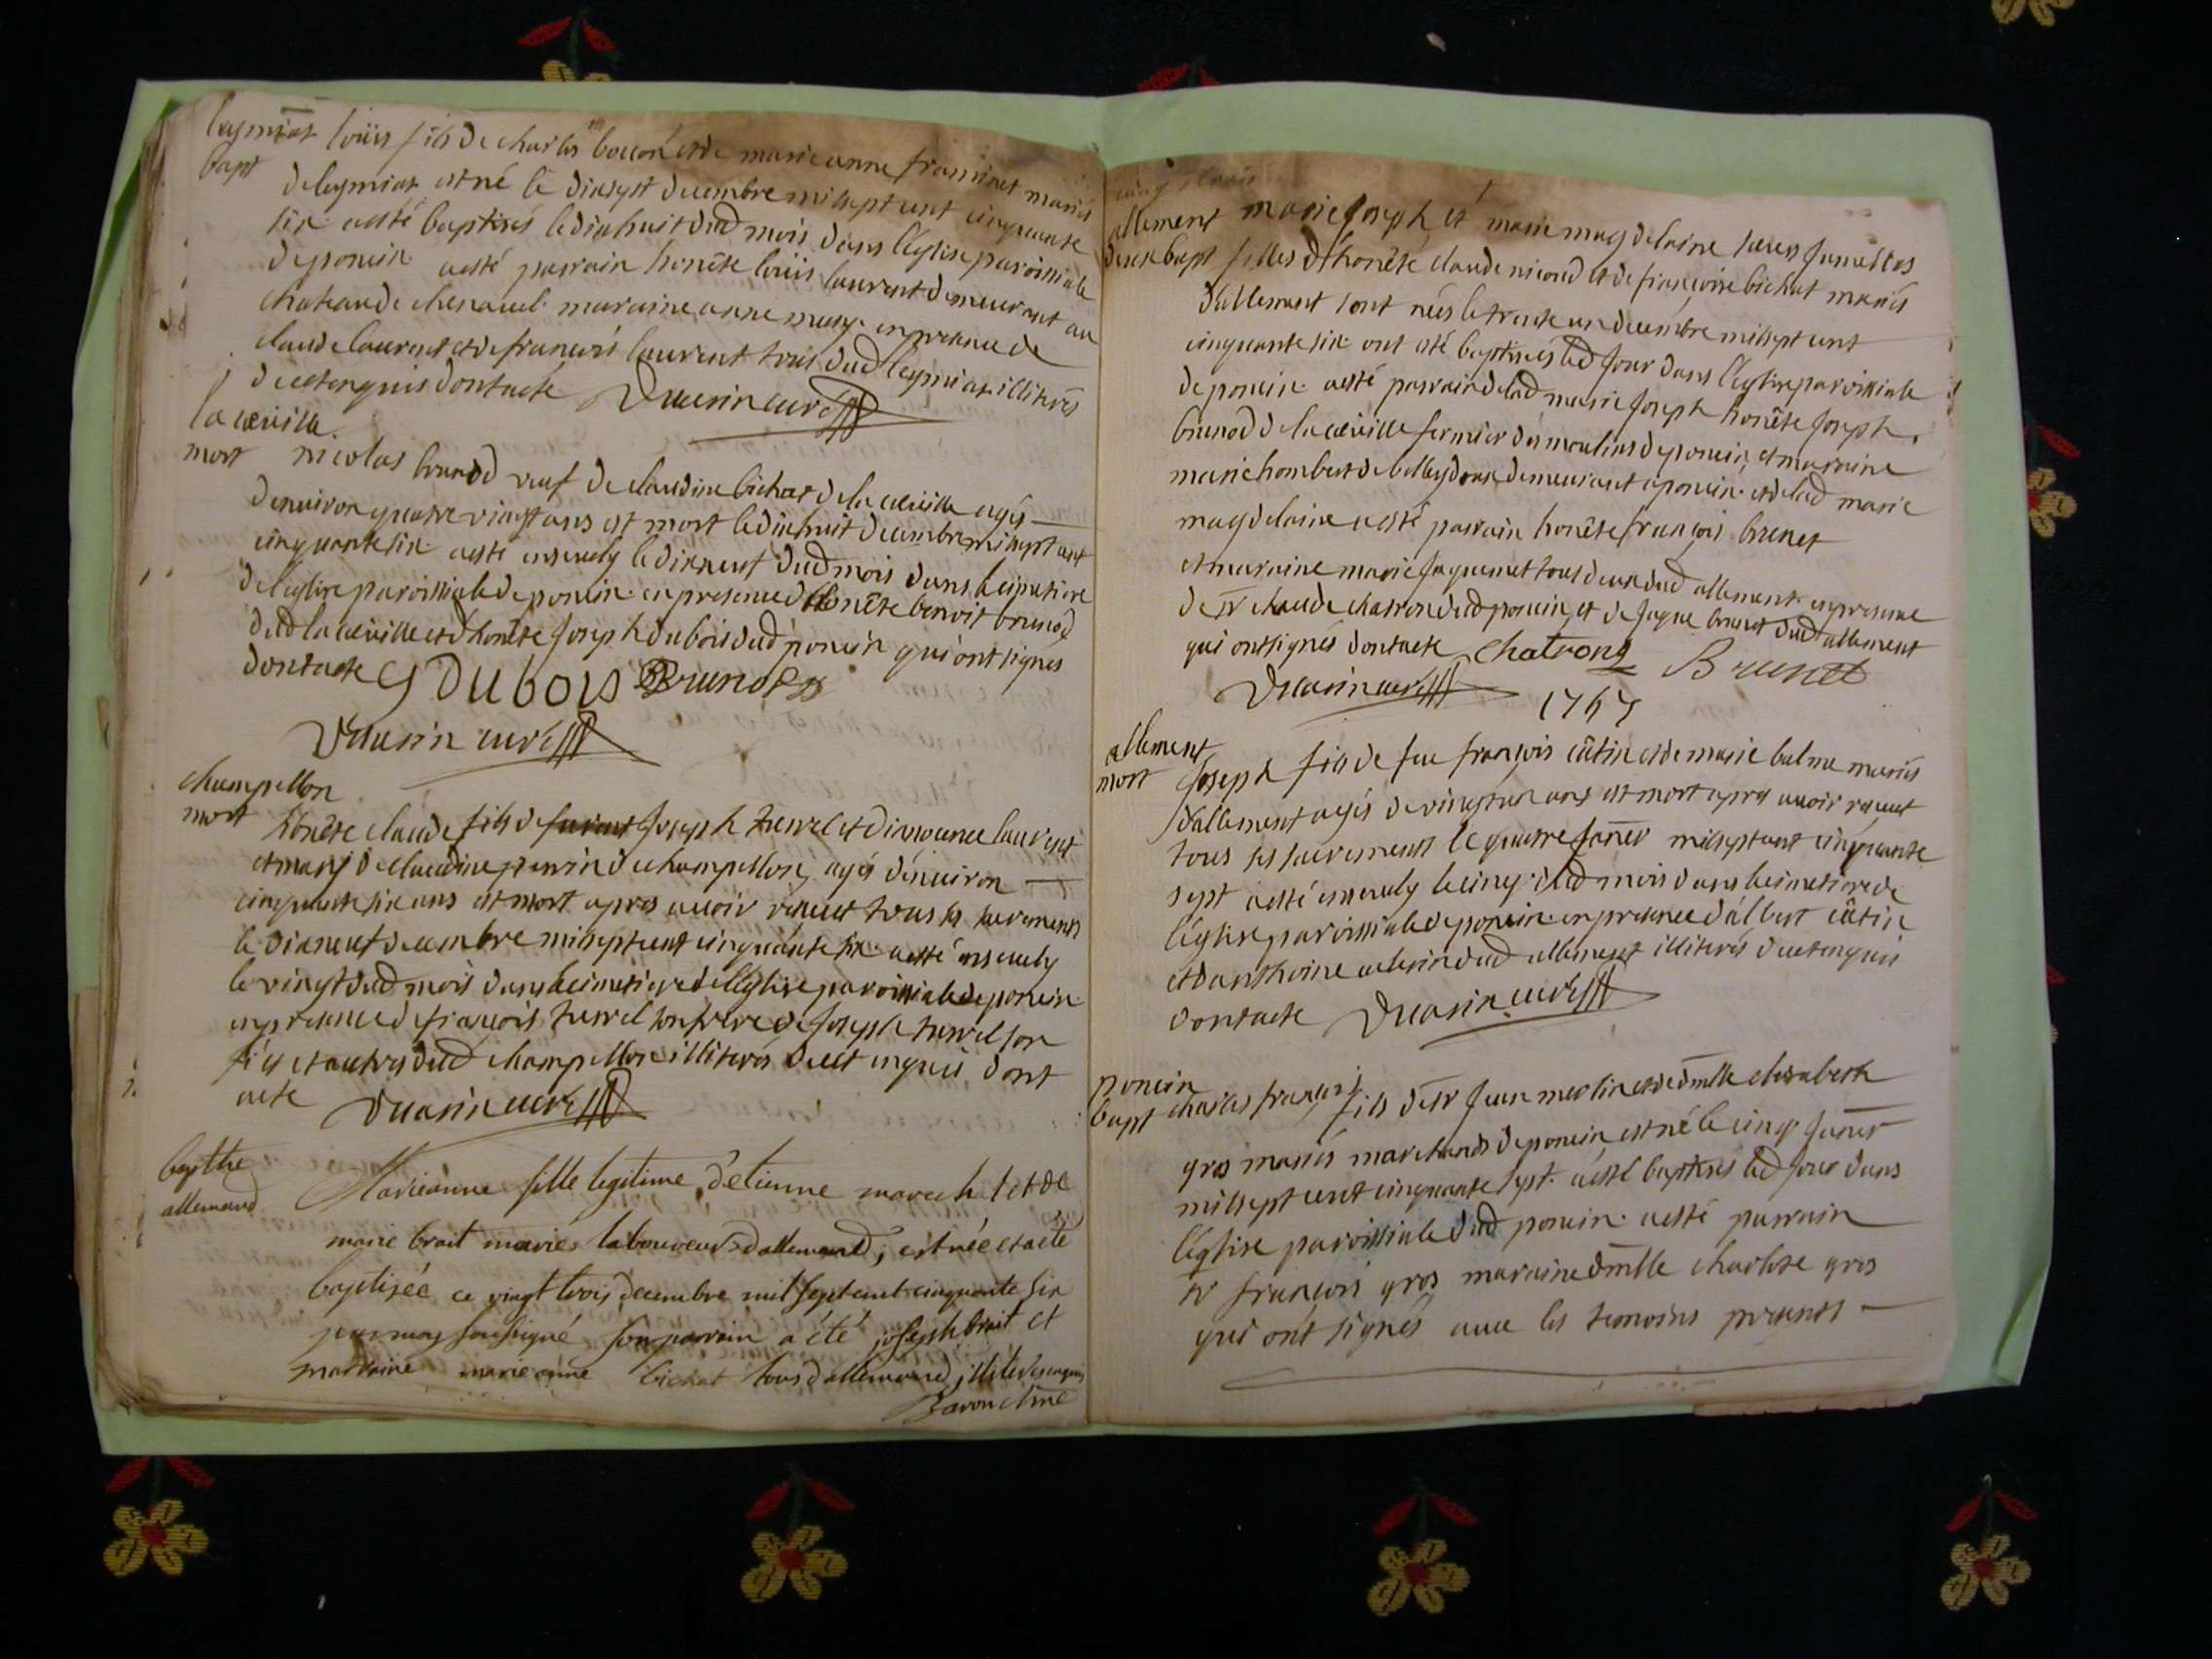 leymiat louis fils de charles bocon et de marie anne franinet mariés
bapt
de leymiat est né le dixsept decembre mil sept cent cinquante
six a esté baptisés le dixhuit dud mois dans l'église paroissiale
de poncin a esté parrain honête louis laurent demeurant au
chateau de chenavel maraine anne musy en presence de
claude laurent et de francois laurent tous dud leymiat illiterés
de ce enquis dont acte Ducrin curé
la cueille
mort nicolas brunod veuf de claudine bichat de la cueille agés
denviron quatre vingt ans est mort le dixhuit decembre mil sept cent
cinquante six a esté ensevely le dixneuf dud mois dans le cimetiere
de l'eglise paroissiale de poncin en presence d'honête benoit brunod
dud la cueille et d'honête joseph dubois dud poncin qui ont signés
dont acte G DUbois Brunod
Ducrin curé
champellon
mort honête claude fils de joseph turrel et dinnocence laurent
et mary de claudine perrin de champellon agés denviron
cinquante six ans est mort apres avoir receut tous les sacrements
le dixneuf decembre mil sept cent cinquante six a esté ensevely
le vingt dud mois dans le cimetiere de l'église paroissiale de poncin
en presence de francois turrel son frere de joseph turrel son
fils et autres dud champellon illiterés de ce enquis dont
acte Ducrin curé
bapthe
allemand
Marieanne fille legitime d'etienne marechal et de
marie brait mariés laboureurs d'allemand, est née et a été
baptisée ce vingt trois decembre mil sept cent cinquante six
par moy soussigné son parrain a été joseph brait et
marraine marie anne bichat tous d'allemand, illiterés enquis
allement marie joseph et marie magdelaine sœurs jumelles
deux bapt filles d'honête claude nicoud et de francoise bichat mariés
d'allement sont nées le trente un decembre mil sept cent
cinquante six ont eté baptisées led jour dans l'église paroissiale
de poncin a esté parrain de lad marie joseph honête joseph
brunod de la cueille fermier des moulins de poncin et maraine
marie hombert de belleydoux demeurant a poncin et de lad marie
magdelaine a esté parrain honête francois brunet
et maraine marie jaquemet tous deux dud allement en presence
de sr claude chatron dud poncin et de jaque brunet dud allement
qui ont signés dont acte chatrong Brunet
Ducrin curé
1757
allement
mort joseph fils de feu francois câtin et de marie balme mariés
d'allement agés de vingt un ans est mort apres avoir receut
tous ses sacrements le quatre janer mil sept cent cinquante
sept a esté ensevely le cinq dud mois dans le cimetiere de
l'église paroissiale de poncin en presence d'albert câtin
et d'anthoine dud allement illiterés de ce enquis
dont acte Ducrin curé
poncin
bapt charles francois fils de sr jean merlin et de dmlle elisabeth
gros mariés marchands de poncin est né le cinq janer
mil sept cent cinquante sept a esté baptisés led jour dans
l'église paroissiale dud poncin a esté parrain
sr francois gros maraine dmlle charlote gros
qui ont signés avec les temoins presents